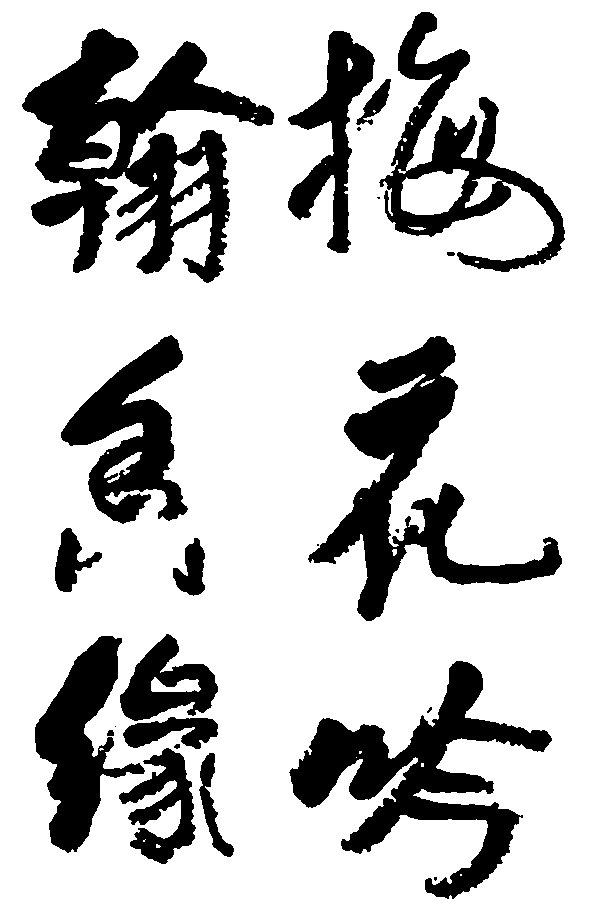 梅花吟
翰香缘